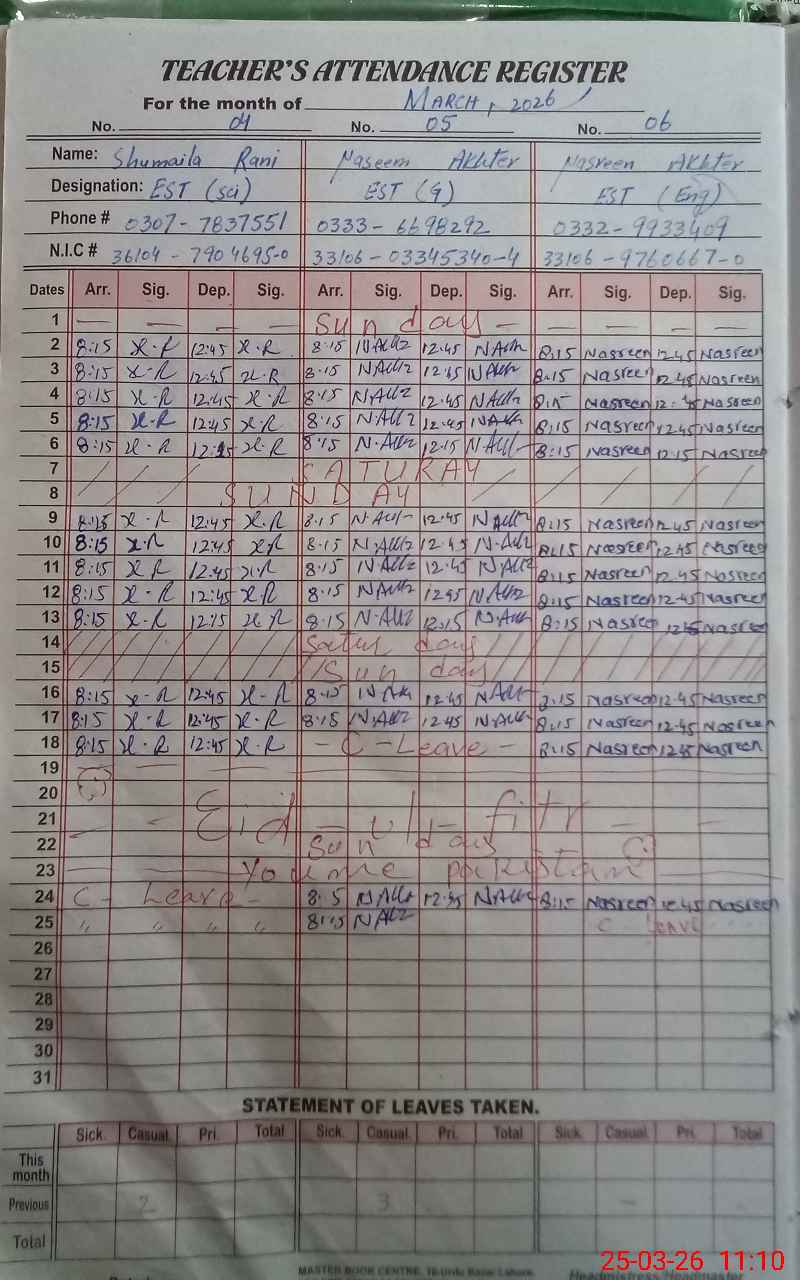 TEACHER'S ATTENDANCE REGISTER
For the month of MARCH, 2026
No. 04 No. 05 No. 06
Name: Shumaila Rani Naseem Akhter Nasreen Akhter
Designation: EST (sci) EST (G) EST (Eng)
Phone # 0307-7837551 0333-6698292 0332-9933409
N.I.C # 36104-7904695-0 33106-03345340-4 33106-9760667-0
Dates Arr. Sig. Dep. Sig. Arr. Sig. Dep. Sig. Arr. Sig. Dep. Sig.
1 — — — — Sun day — — — — —
2 8:15 x.R 12:45 x.R 8:15 12:45 8:15 Nasreen 12 45 Nasreen
3 8:15 x.R 12:45 x.R 8:15 12:45 8:15 Nasreen 12 45 Nasreen
4 8:15 x.R 12:45 x.R 8:15 12:45 8:15 Nasreen 12:45 Nasreen
5 8:15 x.R 12:45 x.R 8:15 12:45 8:15 Nasreen 12:45 Nasreen
6 8:15 x.R 12:15 x.R 8:15 12:15 8:15 Nasreen 12:15 Nasreen
7 SATURAY
8 SUNDAY
9 8:15 x.R 12:45 x.R 8:15 12:45 8:15 Nasreen 12 45 Nasreen
10 8:15 x.R 12:45 x.R 8:15 12:45 8:15 Nasreen 12 45 Nasreen
11 8:15 x R 12:45 x.R 8:15 12:45 8:15 Nasreen 12 45 Nasreen
12 8:15 x.R 12:45 x R 8:15 12 45 8:15 Nasreen 12:45 Nasreen
13 8:15 x.R 12:15 x R 8:15 12:15 8:15 Nasreen Nasreen
14 Satur day
15 Sun day
16 8:15 x-R 12:45 x-R 8:15 12:45 8:15 Nasreen 12:45 Nasreen
17 8:15 x.R 12:45 x.R 8:15 12:45 8:15 Nasreen 12:45 Nasreen
18 8:15 x.R 12:45 x.R - C - Leave - 8:15 Nasreen 12 45 Nasreen
19
20
21 Eid - ul - fitr
22 Sun day
23 youme pakistan
24 C - Leave - 8:15 12:45 8:15 Nasreen 12:45 Nasreen
25 " " " " 8:15 C leave
26
27
28
29
30
31
STATEMENT OF LEAVES TAKEN.
Sick. Casual. Pri. Total Sick. Casual. Pri. Total Sick. Casual. Pri. Total
This month
Previous 2 3 —
Total
MASTER BOOK CENTRE, 16-Urdu Bazar Lahore.
Headmistress/Headmaster
25-03-26 11:10